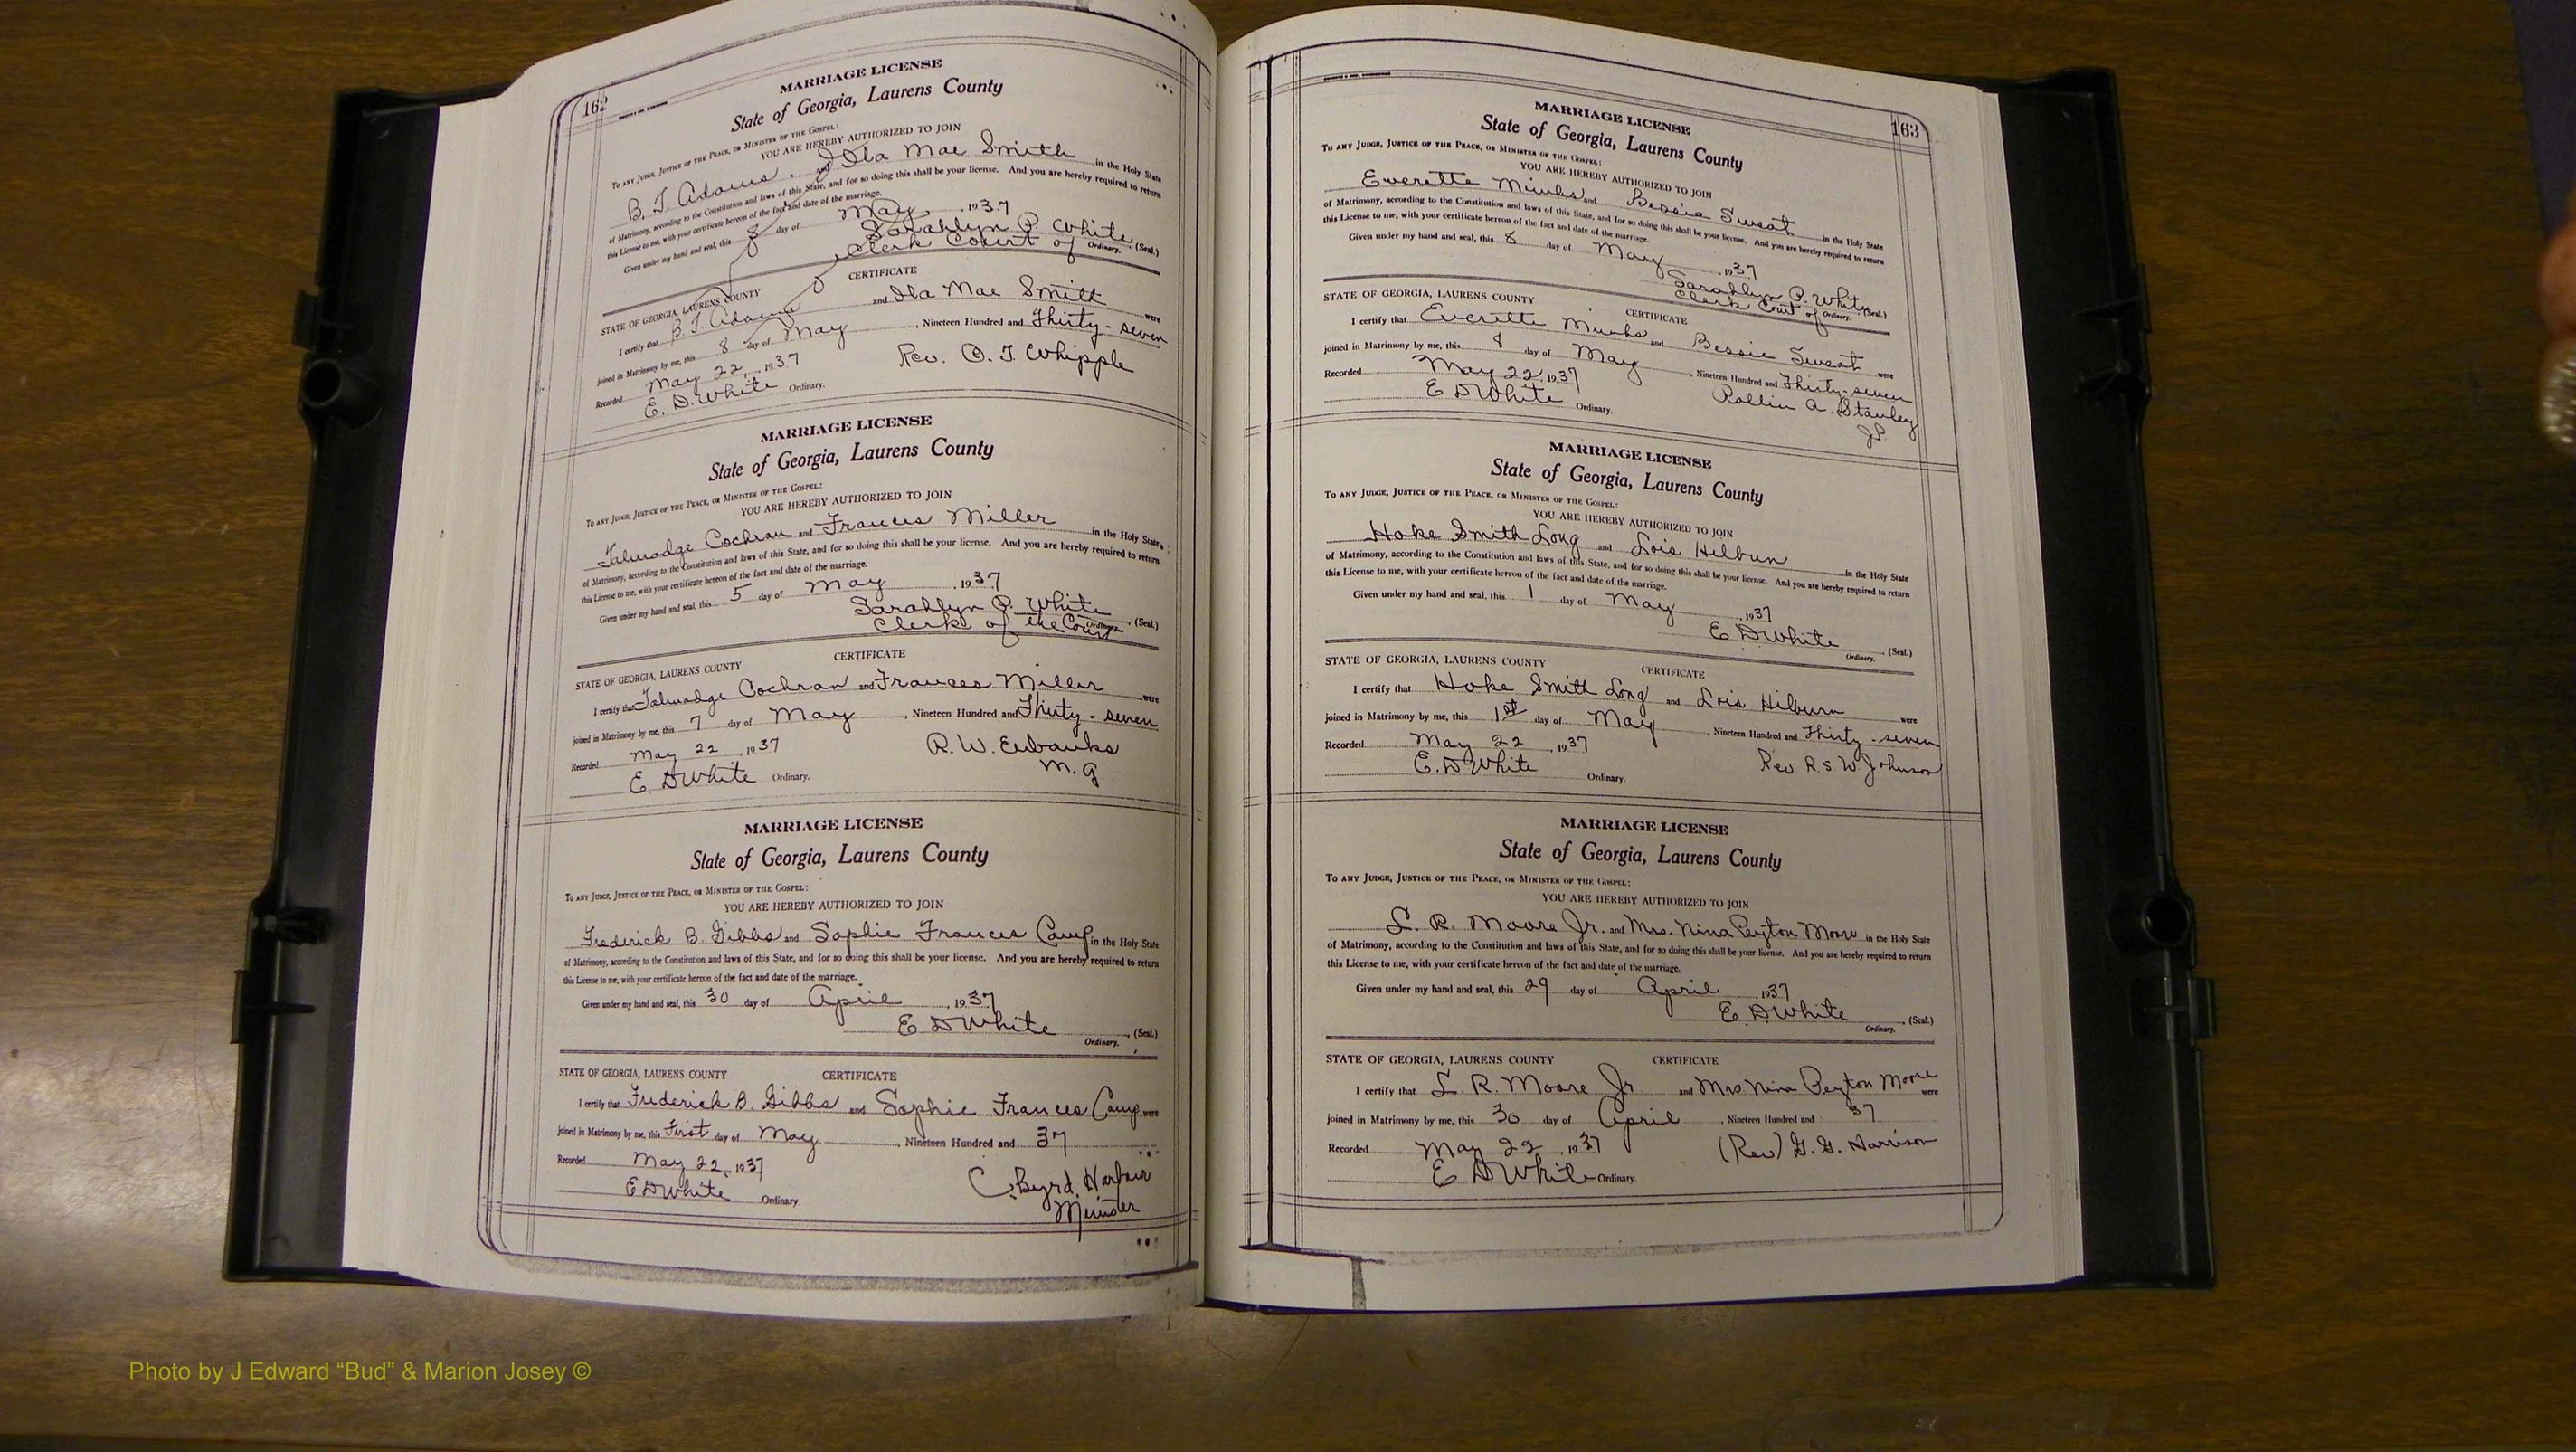 162
MARRIAGE LICENSE
State of Georgia, Laurens County
TO ANY JUDGE, JUSTICE OF THE PEACE, OR MINISTER OF THE GOSPEL:
YOU ARE HEREBY AUTHORIZED TO JOIN
B. T. Adams and Ila Mae Smith in the Holy State
of Matrimony, according to the Constitution and laws of this State, and for so doing this shall be your license. And you are hereby required to return
this License to me, with your certificate hereon of the fact and date of the marriage.
Given under my hand and seal, this 8 day of May, 1937
Sarahlyn P. White (Seal.)
Clerk Court of Ordinary.
CERTIFICATE
STATE OF GEORGIA, LAURENS COUNTY
I certify that B. T. Adams and Ila Mae Smith were
joined in Matrimony by me, this 8 day of May, Nineteen Hundred and Thirty-seven
Recorded May 22, 1937 Rev. O. T. Whipple
E. D. White Ordinary.
MARRIAGE LICENSE
State of Georgia, Laurens County
TO ANY JUDGE, JUSTICE OF THE PEACE, OR MINISTER OF THE GOSPEL:
YOU ARE HEREBY AUTHORIZED TO JOIN
Talmadge Cochran and Frances Miller in the Holy State
of Matrimony, according to the Constitution and laws of this State, and for so doing this shall be your license. And you are hereby required to return
this License to me, with your certificate hereon of the fact and date of the marriage.
Given under my hand and seal, this 5 day of May, 1937
Sarahlyn P. White (Seal.)
Clerk of the Court Ordinary.
CERTIFICATE
STATE OF GEORGIA, LAURENS COUNTY
I certify that Talmadge Cochran and Frances Miller were
joined in Matrimony by me, this 7 day of May, Nineteen Hundred and Thirty-seven
Recorded May 22, 1937 R. W. Eubanks
E. D White Ordinary. M. G
MARRIAGE LICENSE
State of Georgia, Laurens County
TO ANY JUDGE, JUSTICE OF THE PEACE, OR MINISTER OF THE GOSPEL:
YOU ARE HEREBY AUTHORIZED TO JOIN
Frederick B. Gibbs and Sophie Frances Camp in the Holy State
of Matrimony, according to the Constitution and laws of this State, and for so doing this shall be your license. And you are hereby required to return
this License to me, with your certificate hereon of the fact and date of the marriage.
Given under my hand and seal, this 30 day of April, 1937
E D White (Seal.)
Ordinary.
STATE OF GEORGIA, LAURENS COUNTY CERTIFICATE
I certify that Frederick B. Gibbs and Sophie Frances Camp were
joined in Matrimony by me, this First day of May, Nineteen Hundred and 37
Recorded May 22, 1937 C. Byrd. Harbour
E D White Ordinary. Minister
163
MARRIAGE LICENSE
State of Georgia, Laurens County
TO ANY JUDGE, JUSTICE OF THE PEACE, OR MINISTER OF THE GOSPEL:
YOU ARE HEREBY AUTHORIZED TO JOIN
Everette Minks and Bessie Sweat in the Holy State
of Matrimony, according to the Constitution and laws of this State, and for so doing this shall be your license. And you are hereby required to return
this License to me, with your certificate hereon of the fact and date of the marriage.
Given under my hand and seal, this 8 day of May, 1937
Sarahlyn P. White (Seal.)
Clerk Court of Ordinary.
STATE OF GEORGIA, LAURENS COUNTY CERTIFICATE
I certify that Everette Minks and Bessie Sweat were
joined in Matrimony by me, this 8 day of May, Nineteen Hundred and Thirty-seven
Recorded May 22, 1937 Rollin A. Stanley
E D White Ordinary. J.P.
MARRIAGE LICENSE
State of Georgia, Laurens County
TO ANY JUDGE, JUSTICE OF THE PEACE, OR MINISTER OF THE GOSPEL:
YOU ARE HEREBY AUTHORIZED TO JOIN
Hoke Smith Long and Lois Hilbun in the Holy State
of Matrimony, according to the Constitution and laws of this State, and for so doing this shall be your license. And you are hereby required to return
this License to me, with your certificate hereon of the fact and date of the marriage.
Given under my hand and seal, this 1 day of May, 1937
E D White (Seal.)
Ordinary.
STATE OF GEORGIA, LAURENS COUNTY CERTIFICATE
I certify that Hoke Smith Long and Lois Hilburn were
joined in Matrimony by me, this 1st day of May, Nineteen Hundred and Thirty-seven
Recorded May 22, 1937 Rev R. S. W. Johnson
E. D White Ordinary.
MARRIAGE LICENSE
State of Georgia, Laurens County
TO ANY JUDGE, JUSTICE OF THE PEACE, OR MINISTER OF THE GOSPEL:
YOU ARE HEREBY AUTHORIZED TO JOIN
L. R. Moore Jr. and Mrs. Nina Peyton Moore in the Holy State
of Matrimony, according to the Constitution and laws of this State, and for so doing this shall be your license. And you are hereby required to return
this License to me, with your certificate hereon of the fact and date of the marriage.
Given under my hand and seal, this 29 day of April, 1937
E. D White (Seal.)
Ordinary.
STATE OF GEORGIA, LAURENS COUNTY CERTIFICATE
I certify that L. R. Moore Jr. and Mrs Nina Peyton Moore were
joined in Matrimony by me, this 30 day of April, Nineteen Hundred and 37
Recorded May 22, 1937 (Rev) G. G. Harrison
E D White Ordinary.
Photo by J Edward “Bud” & Marion Josey ©